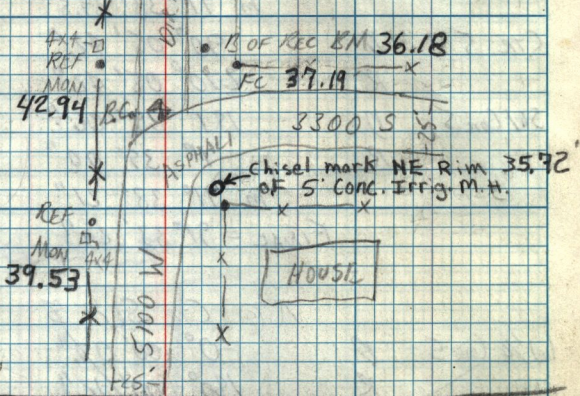 4x4
REF
MON
42.94
B OF REC BM 36.18
FC 37.19
3300 S
25'
ASPHALT
chisel mark NE Rim 35.72'
of 5' Conc. Irrig. M.H.
REF
MON
4x4
39.53
HOUSE
5100 W
25'